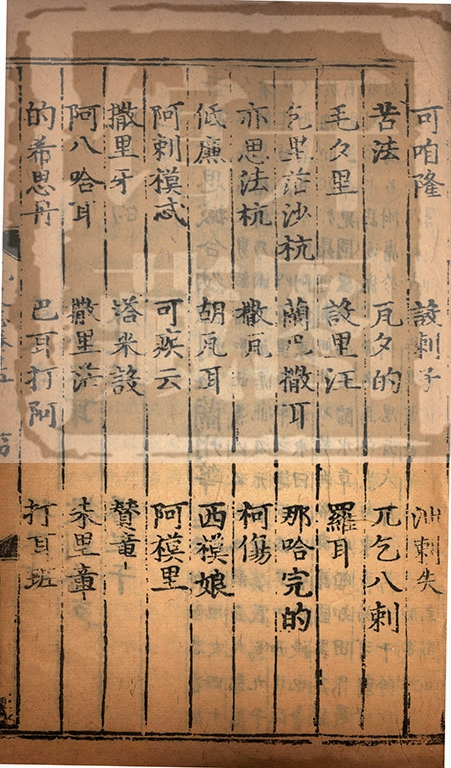 可咱隆 設剌子 泄剌失
苦法 瓦夕的 兀乞八剌
毛夕里 設里汪 羅耳
乞里茫沙杭 蘭巴撒耳 那哈完的
亦思法杭 撒瓦 柯傷
低廉 胡瓦耳 西模娘
阿剌模忒 可疾云 阿模里
撒里牙 塔米設 賛章
阿八哈耳 撒里茫 朱里章
的希思丹 巴耳打阿 打耳班